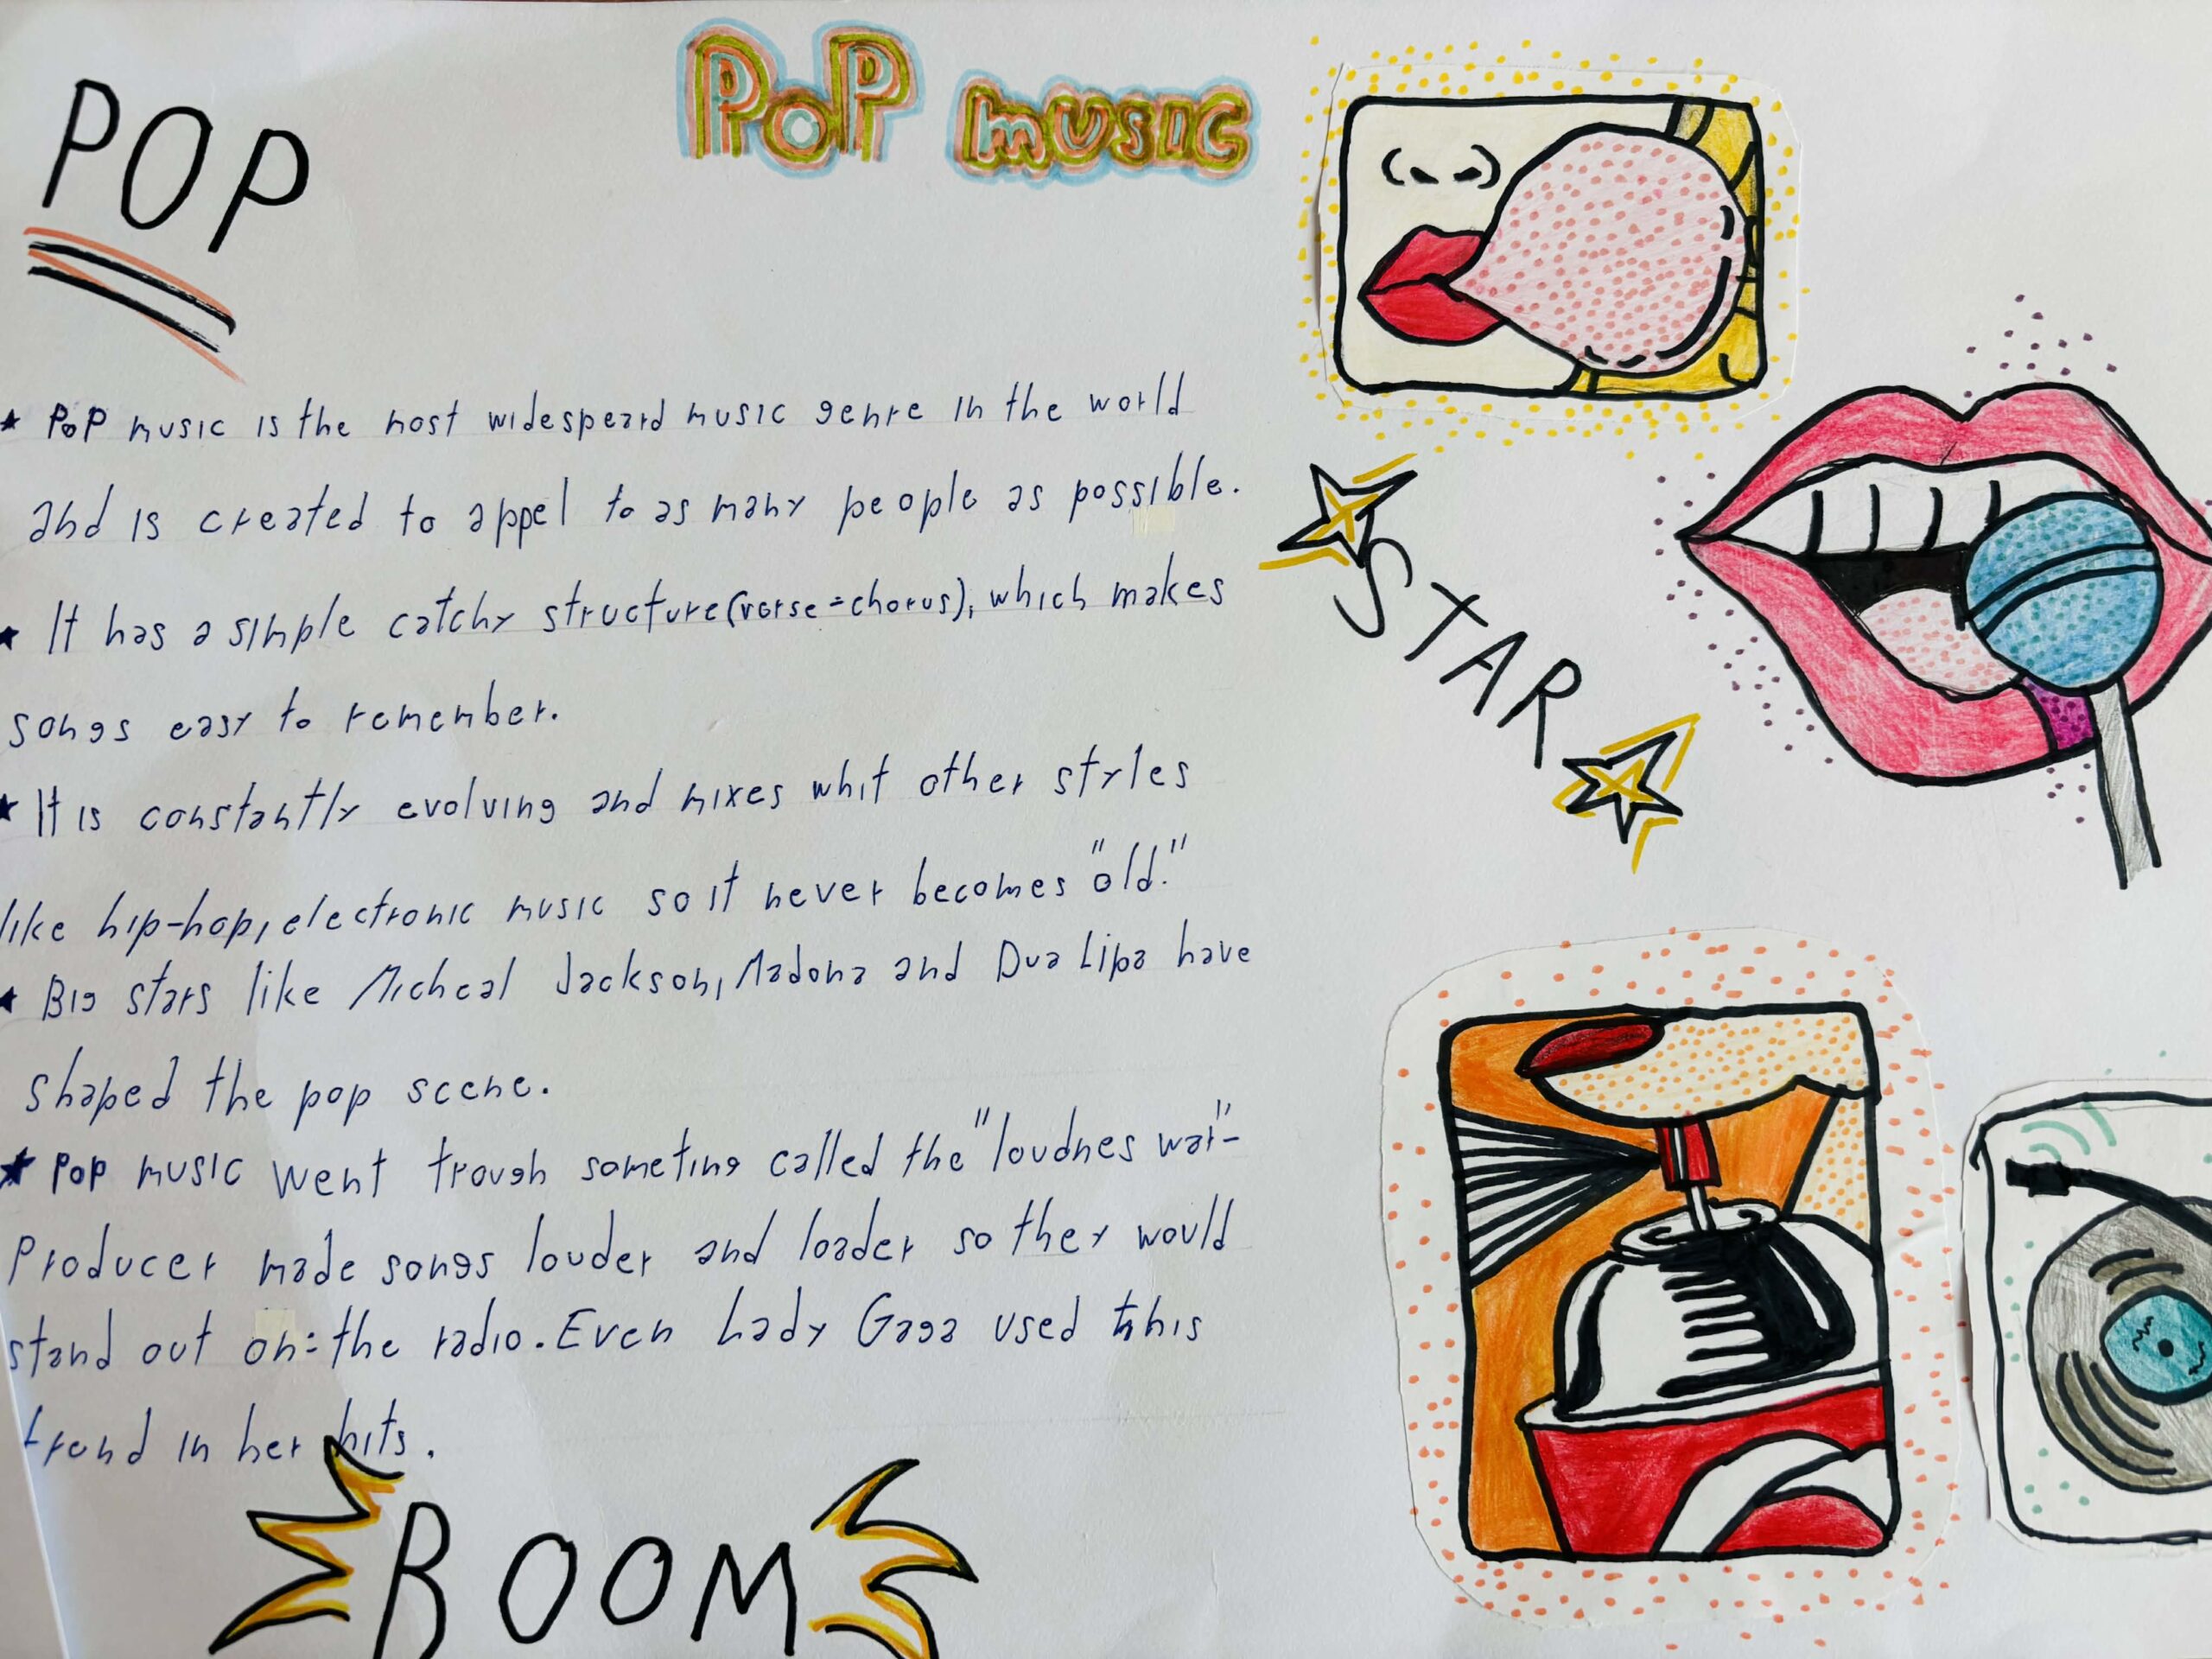 POP
POP MUSIC
★ POP music is the most widespeard music genre in the world
and is created to appel to as many people as possible.
★ It has a simple catchy structure (verse=chorus), which makes
songs easy to remember.
★ It is constantly evolving and mixes whit other styles
like hip-hop, electronic music so it never becomes "old."
★ Big stars like Micheal Jackson, Madona and Dua Lipa have
shaped the pop scene.
★ Pop music went trough someting called the "loudnes war"-
Producer made songs louder and loader so they would
stand out on the radio. Even Lady Gaga used this
trend in her hits.
STAR
BOOM